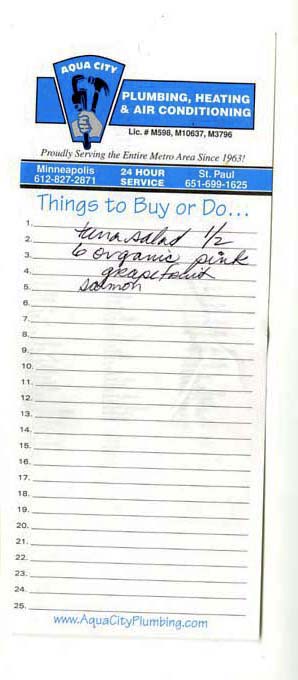 AQUA CITY
PLUMBING, HEATING
& AIR CONDITIONING
Lic. # M598, M10637, M3796
Proudly Serving the Entire Metro Area Since 1963!
Minneapolis 24 HOUR St. Paul
612-827-2871 SERVICE 651-699-1625
Things to Buy or Do...
1.
2. tuna salad 1/2
3. 6 organic pink
4. grapefruit
5. salmon
6.
7.
8.
9.
10.
11.
12.
13.
14.
15.
16.
17.
18.
19.
20.
21.
22.
23.
24.
25.
www.AquaCityPlumbing.com